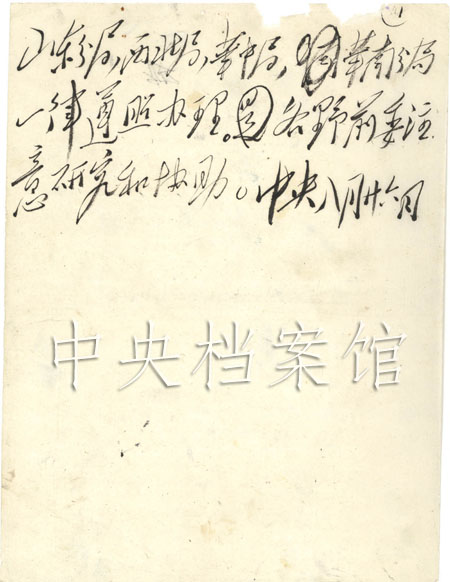 山东分局,西北局,华中局,华南分局
一律遵照办理。各野前委注
意研究和协助。中央八月十六日
中央档案馆